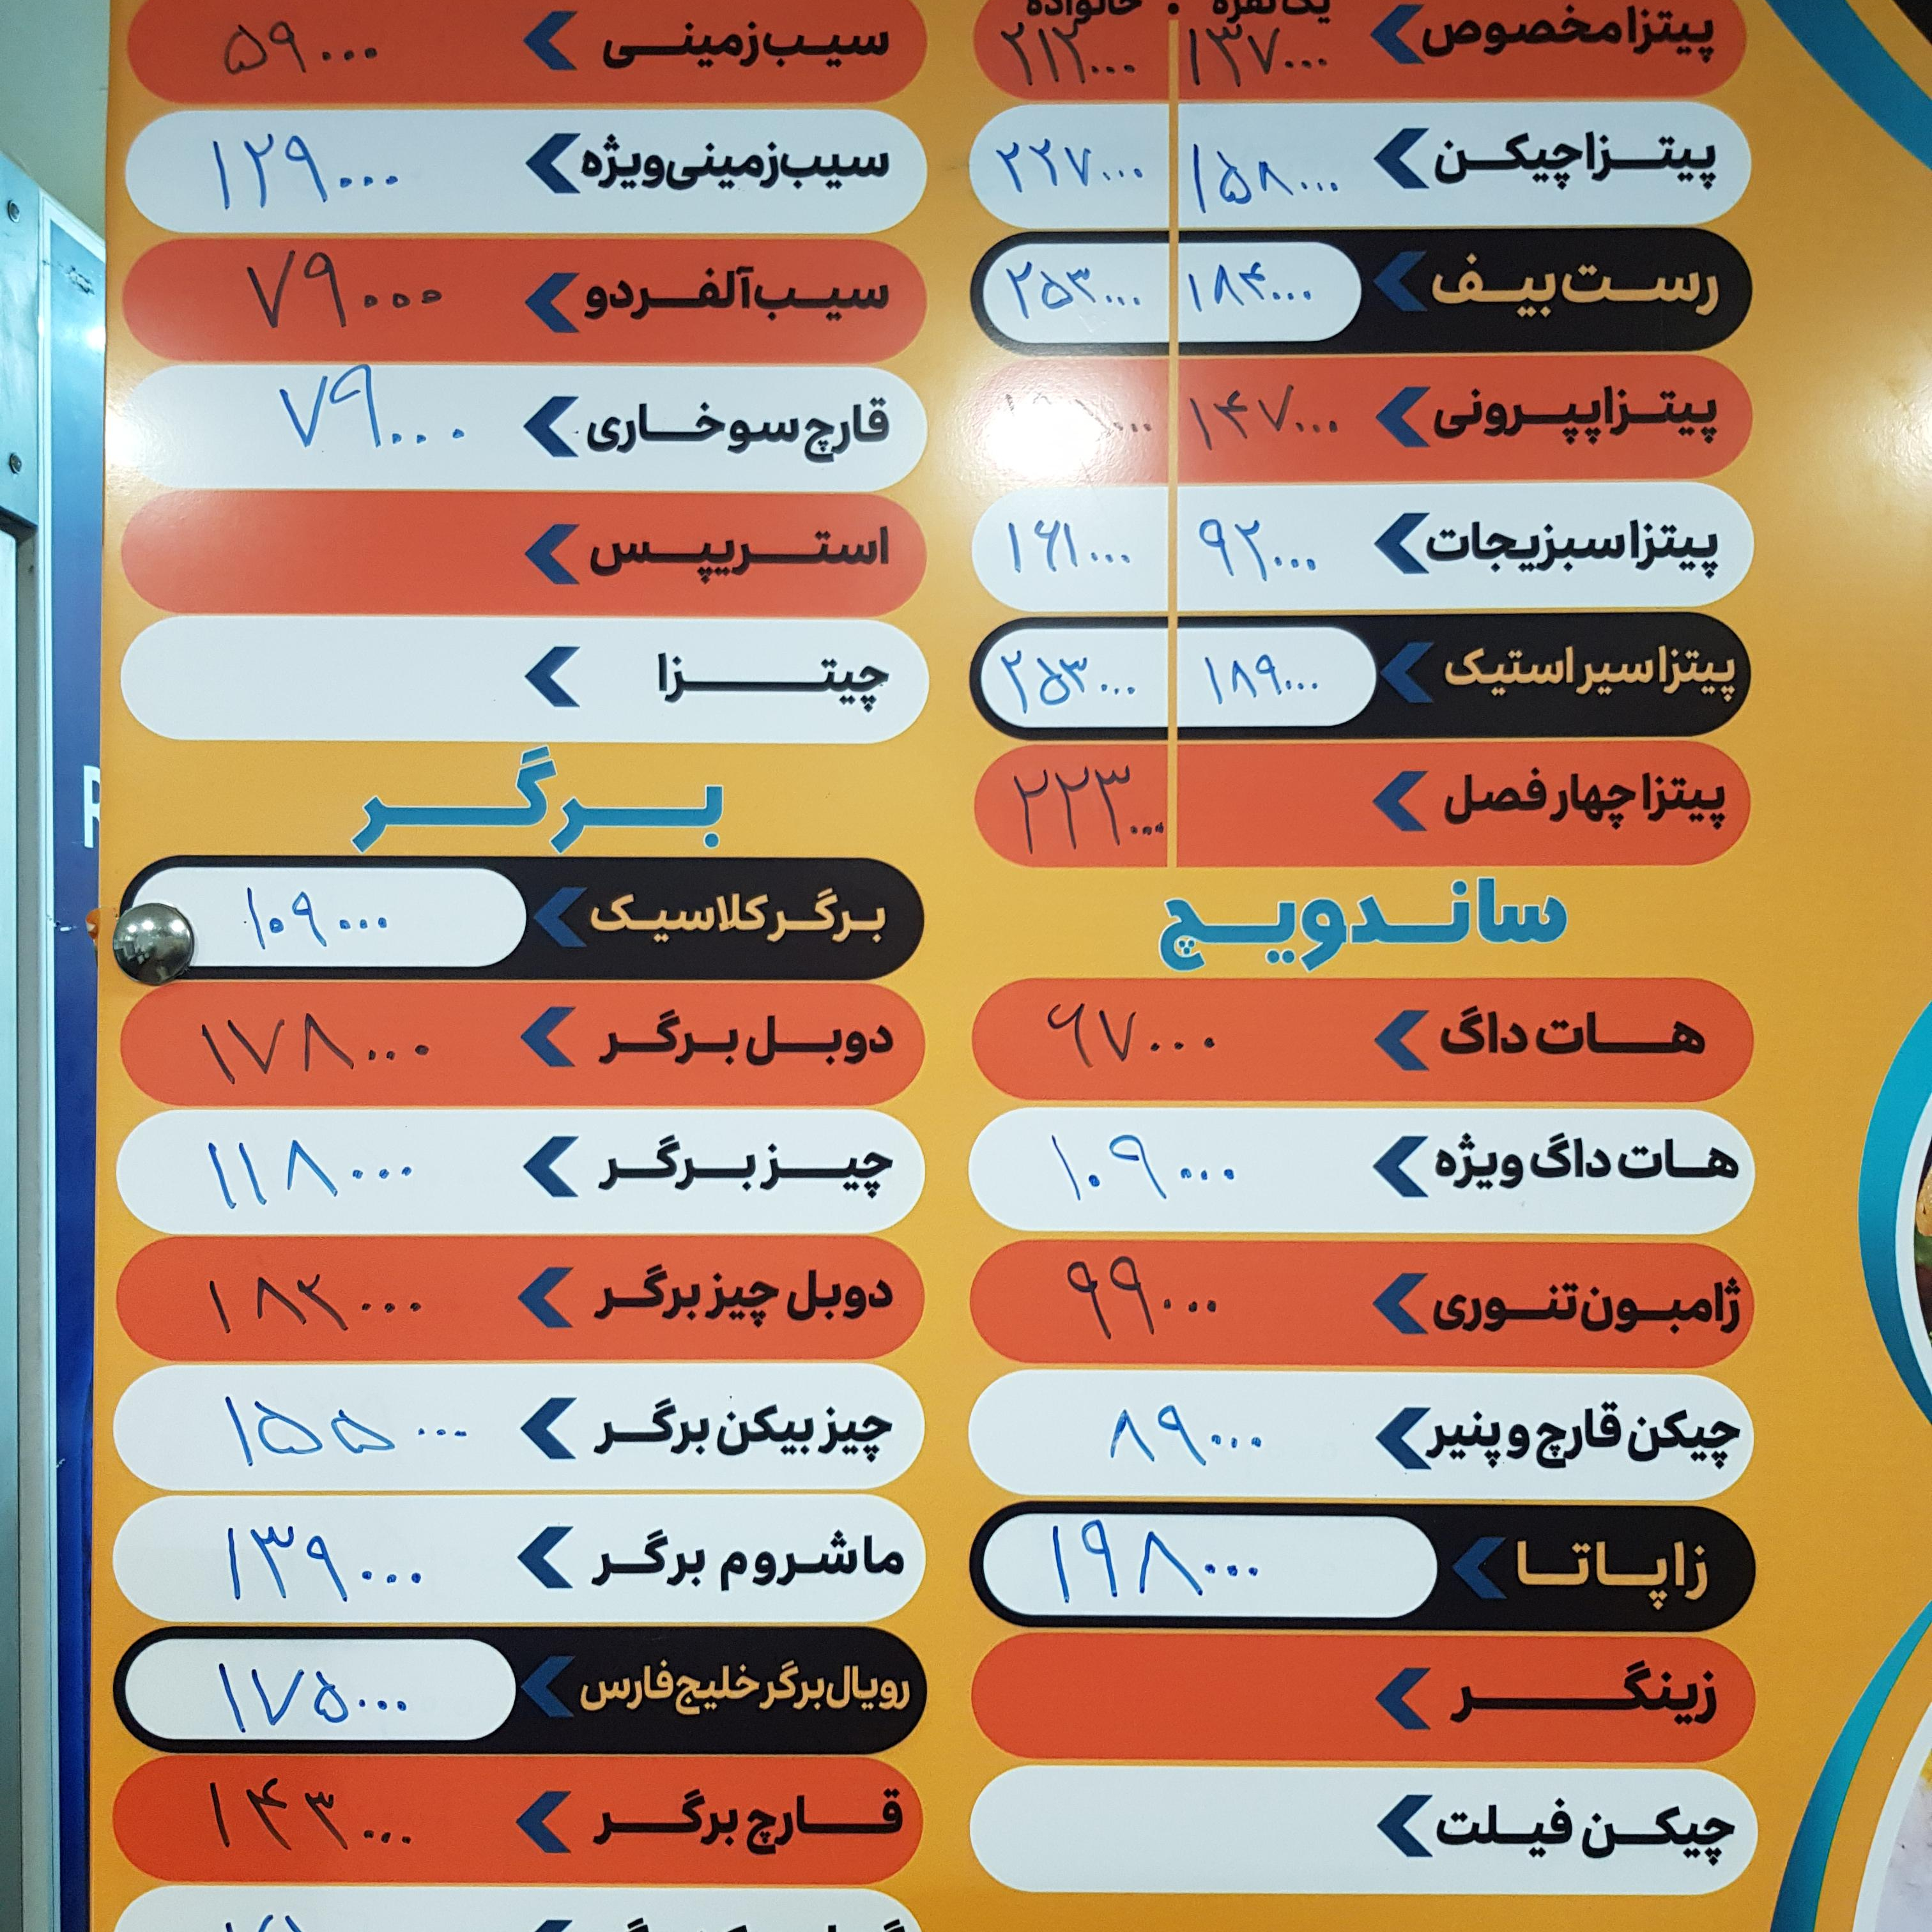 یک نفره • خانواده
پیتزا مخصوص ۱۳۷۰۰۰ ۲۱۲۰۰۰
پیتزا چیکن ۱۵۸۰۰۰ ۲۲۷۰۰۰
رست بیف ۱۸۴۰۰۰ ۲۵۳۰۰۰
پیتزا پپرونی ۱۴۷۰۰۰
پیتزا سبزیجات ۹۲۰۰۰ ۱۶۱۰۰۰
پیتزا سیر استیک ۱۸۹۰۰۰ ۲۵۳۰۰۰
پیتزا چهار فصل ۲۲۳۰۰۰
ساندویچ
هات داگ ۶۷۰۰۰
هات داگ ویژه ۱۰۹۰۰۰
ژامبون تنوری ۹۹۰۰۰
چیکن قارچ و پنیر ۸۹۰۰۰
زاپاتا ۱۹۸۰۰۰
زینگر
چیکن فیلت
سیب زمینی ۵۹۰۰۰
سیب زمینی ویژه ۱۲۹۰۰۰
سیب آلفردو ۷۹۰۰۰
قارچ سوخاری ۷۹۰۰۰
استریپس
چیتزا
برگر
برگر کلاسیک ۱۰۹۰۰۰
دوبل برگر ۱۷۸۰۰۰
چیز برگر ۱۱۸۰۰۰
دوبل چیز برگر ۱۸۲۰۰۰
چیز بیکن برگر ۱۵۵۰۰۰
ماشروم برگر ۱۳۹۰۰۰
رویال برگر خلیج فارس ۱۷۵۰۰۰
قارچ برگر ۱۴۳۰۰۰